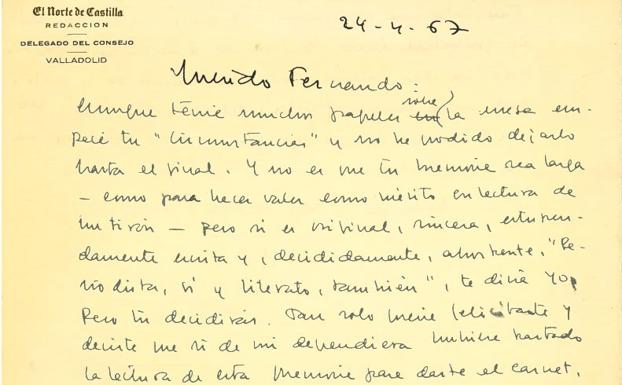 El Norte de Castilla
REDACCION
DELEGADO DEL CONSEJO
VALLADOLID
24-4-67
Querido Fernando:
Aunque tenía muchos papeles sobre la mesa em-
pecé tu "Circunstancias" y no he podido dejarlo
hasta el final. Y no es que tu memoria sea larga
– como para hacer valer como mérito su lectura de
un tirón – pero sí es original, sincera, estupen-
damente escrita y, decididamente, absorbente. "Pe-
riodista, sí y literato, también", te diría yo,
Pero tú decidirás. Tan solo quería felicitarte y
decirte que si de mí dependiera hubiera bastado
la lectura de esta memoria para darte el carnet.